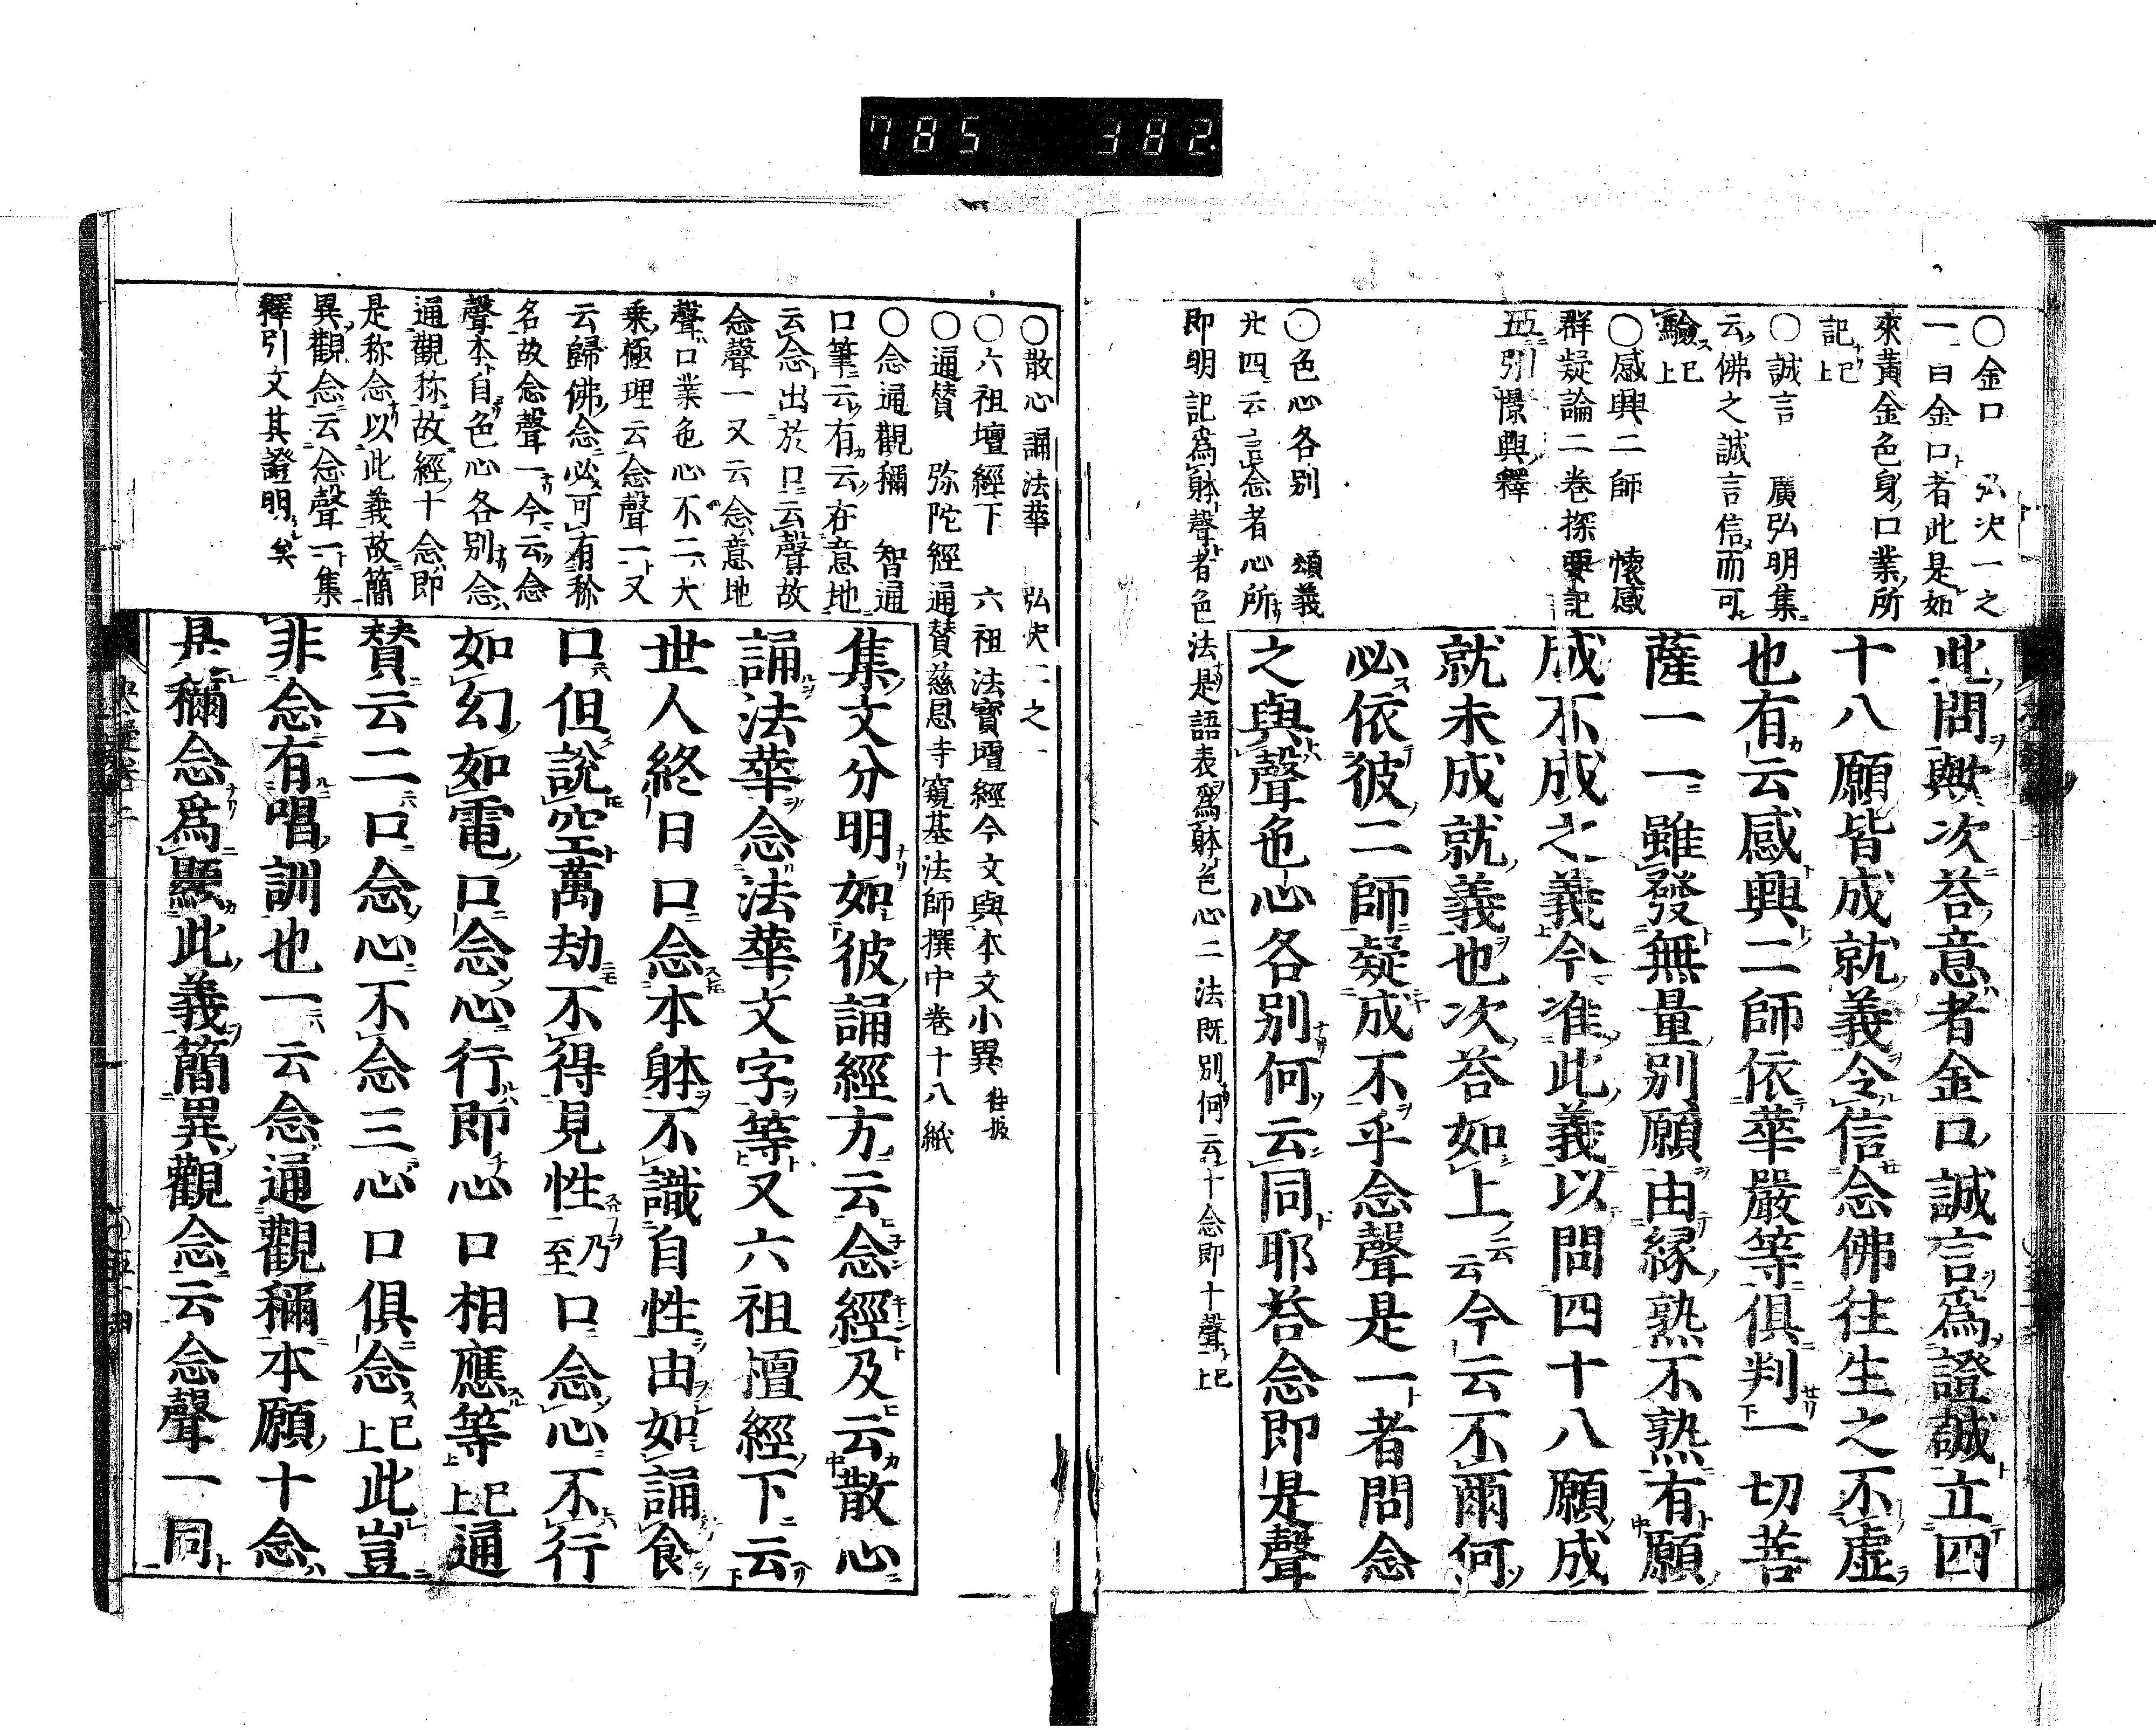 785 382
○金口 弘決一之
一曰金口者此是如
來黃金色身口業所
記已上
○誠言 廣弘明集
云佛之誠言信而可
驗已上
○感興二師 懷感
群疑論二卷探要記
五引憬興釋
○色心各別 頌義
廿四云言念者心所
即明記爲躰聲者色法是語表爲躰色心二法既別何云十念即十聲已上
此問歟次荅意者金口誠言爲證誠立四
十八願皆成就義令信念佛往生之不虛
也有云感興二師依華嚴等俱判一切菩
薩一一雖發無量別願由緣熟不熟有願
成不成之義今准此義以問四十八願成
就未成就義也次荅如上云云今云不爾何
必依彼二師疑成不乎念聲是一者問念
之與聲色心各別何云同耶荅念即是聲
○散心誦法華 弘決一之一
○六祖壇經下 六祖法寶壇經今文與本文小異
○通贊 弥陀經通贊慈恩寺窺基法師撰中卷十八紙
○念通觀稱 智通
口筆云有云在意地
云念出於口云聲故
念聲一又云念意地
聲口業色心不二大
乗極理云念聲一又
云歸佛念必可有称
名故念聲一今云念
聲本自色心各別念
通觀称故經十念即
是称念以此義故簡
異觀念云念聲一集
釋引文其證明矣
集文分明如彼誦經方云念經及云散心
誦法華念法華文字等又六祖壇經下云
世人終日口念本躰不識自性由如誦食
口但說空萬劫不得見性乃至口念心不行
如幻如電口念心行即心口相應等已上通
贊云二口念心不念三心口俱念已上此豈
非念有唱訓也一云念通觀稱本願十念
是稱念爲顯此義簡異觀念云念聲一同